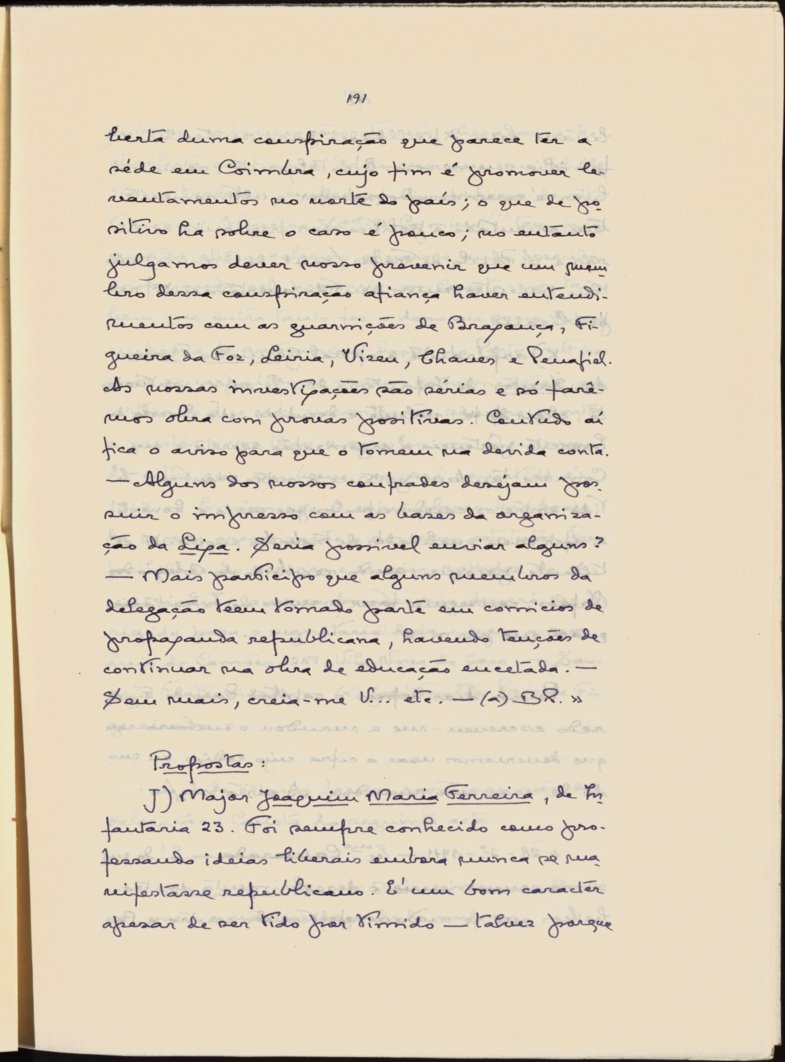 191
berta duma conspiração que parece ter a
séde em Coimbra, cujo fim é promover le-
vantamentos no norte do país; o que de po-
sitivo ha sobre o caso é pouco; no entanto
julgamos dever nosso prevenir que um mem-
bro dessa conspiração afiança haver entendi-
mentos com as guarnições de Bragança, Fi-
gueira da Foz, Leiria, Vizeu, Chaves e Penafiel.
As nossas investigações são sérias e só farê-
mos obra com provas positivas. Contudo aí
fica o aviso para que o tomem na devida conta.
— Alguns dos nossos confrades desejam pos-
suir o impresso com as bases da organiza-
ção da Liga. Seria possivel enviar alguns?
— Mais participo que alguns membros da
delegação teem tomado parte em comicios de
propaganda republicana, havendo tenções de
continuar na obra de educação encetada. —
Sem mais, creia-me V... etc. — (a) Bl. »
Propostas:
J) Major Joaquim Maria Ferreira, de In-
fantaria 23. Foi sempre conhecido como pro-
fessando ideias liberais embora nunca se ma-
nifestasse republicano. E' um bom caracter
apesar de ser tido por timido — talvez porque